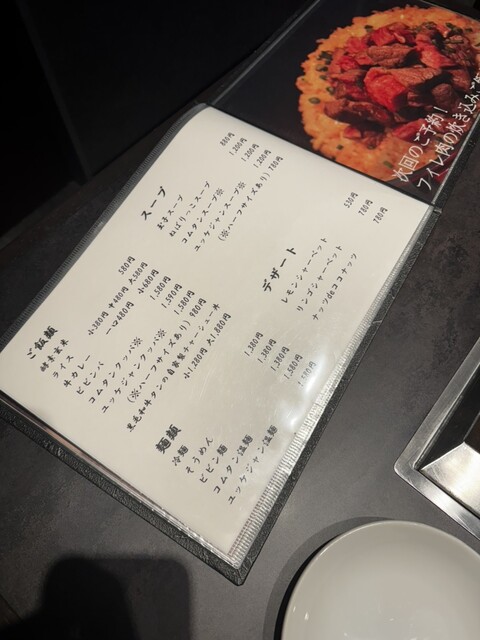 スープ
玉子スープ 880円
ねばりっこスープ 1,200円
コムタンスープ※ 1,200円
ユッケジャンスープ※ 1,200円
(※ハーフサイズあり) 780円
デザート
レモンシャーベット 530円
リンゴシャーベット 780円
ナッツdeココナッツ 780円
ご飯類
酵素玄米 580円
ライス 小380円 中480円 大580円
牛カレー 一口480円 小680円
ビビンバ 1,580円
コムタンクッパ※ 1,590円
ユッケジャンクッパ※ 1,580円
(※ハーフサイズあり) 980円
黒毛和牛タンの自家製チャーシュー丼 小1,280円 大1,880円
麺類
冷麺 1,380円
そうめん 1,380円
ビビン麺 1,380円
コムタン温麺 1,580円
ユッケジャン温麺
次回のご予約!
フィレ肉の炊き込みご